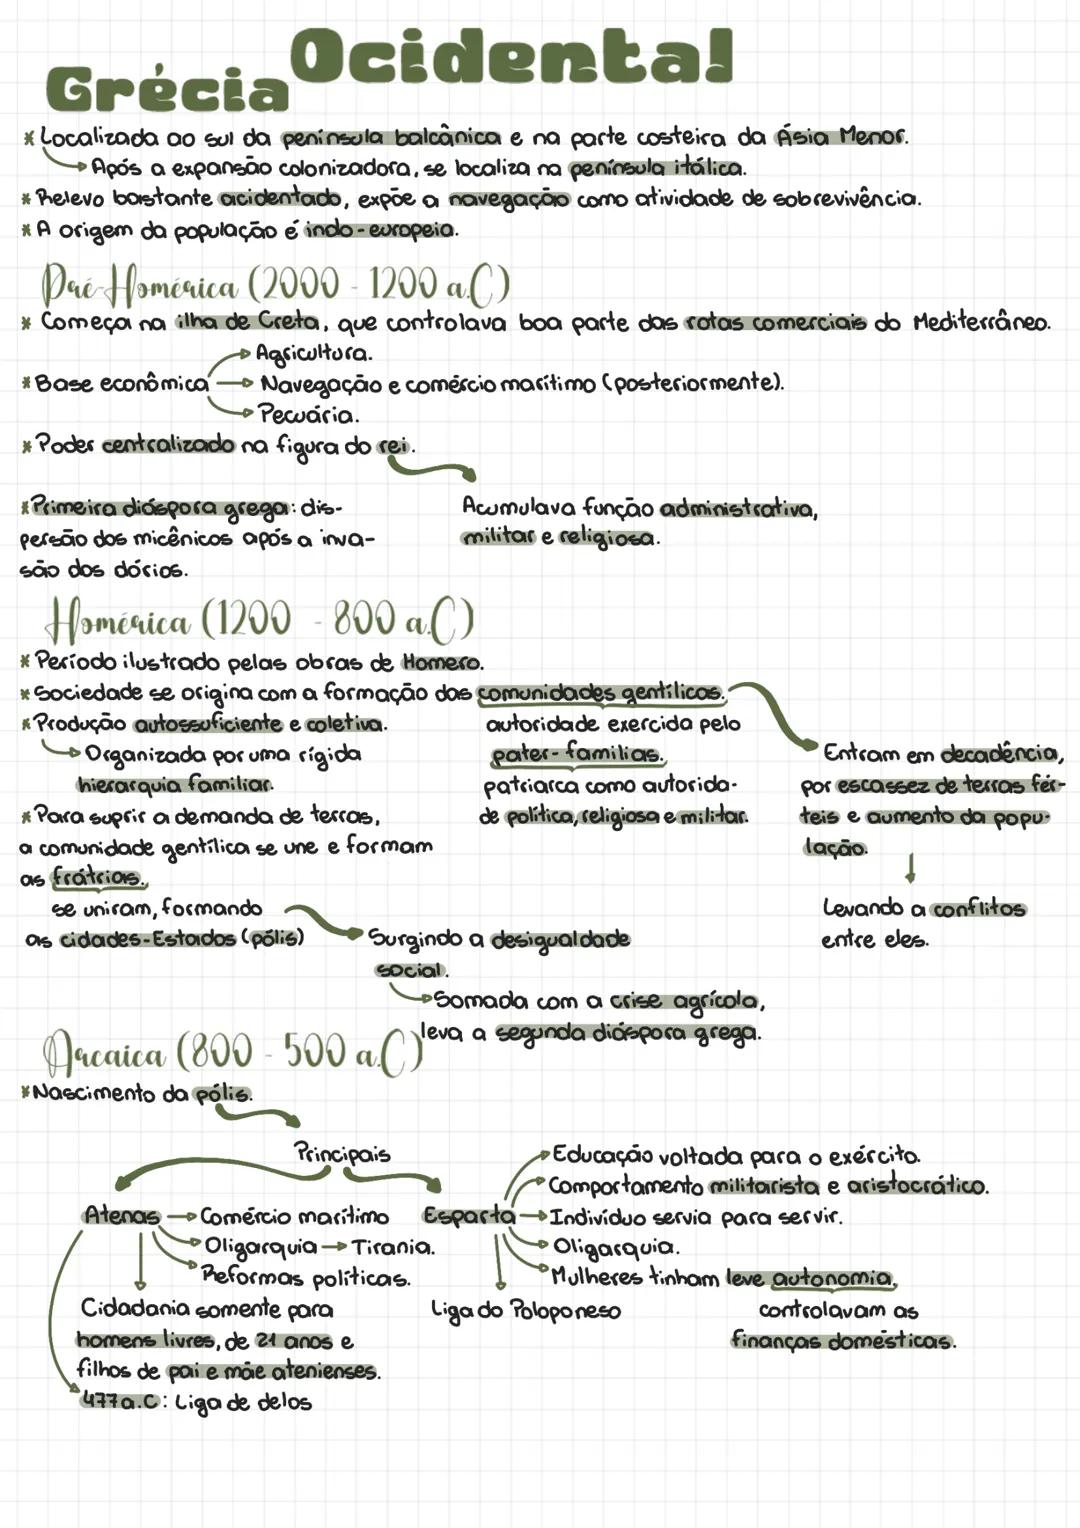 Grécia Ocidental
* Localizada ao sul da península balcânica e na parte costeira da Ásia Menor.
Após a expansão colonizadora, se localiza na península itálica.
* Relevo bastante acidentado, expõe a navegação como atividade de sobrevivência.
* A origem da população é indo-europeia.
Pré-Homérica (2000 - 1200 a.C)
* Começa na ilha de Creta, que controlava boa parte das rotas comerciais do Mediterrâneo.
Agricultura.
* Base econômica → Navegação e comércio marítimo (posteriormente).
Pecuária.
* Poder centralizado na figura do rei.
Acumulava função administrativa,
militar e religiosa.
* Primeira diáspora grega: dis-
persão dos micênicos após a inva-
são dos dórios.
Homérica (1200 - 800 a.C)
* Período ilustrado pelas obras de Homero.
* Sociedade se origina com a formação das comunidades gentílicas.
autoridade exercida pelo
pater-familias.
patriarca como autorida-
de política, religiosa e militar.
Entram em decadência,
por escassez de terras fér-
teis e aumento da popu-
lação.
Levando a conflitos
entre eles.
* Produção autossuficiente e coletiva.
Organizada por uma rígida
hierarquia familiar.
* Para suprir a demanda de terras,
a comunidade gentílica se une e formam
as frátrias.
se uniram, formando
as cidades-Estados (pólis)
Surgindo a desigualdade
social.
Somada com a crise agrícola,
leva a segunda diáspora grega.
Arcaica (800 - 500 a.C)
* Nascimento da pólis.
Principais
Atenas → Comércio marítimo
Oligarquia → Tirania.
Reformas políticas.
Cidadania somente para
homens livres, de 21 anos e
filhos de pai e mãe atenienses.
477 a.C: Liga de delos
Educação voltada para o exército.
Comportamento militarista e aristocrático.
Esparta → Indivíduo servia para servir.
Oligarquia.
Mulheres tinham leve autonomia,
controlavam as
finanças domésticas.
Liga do Poloponeso